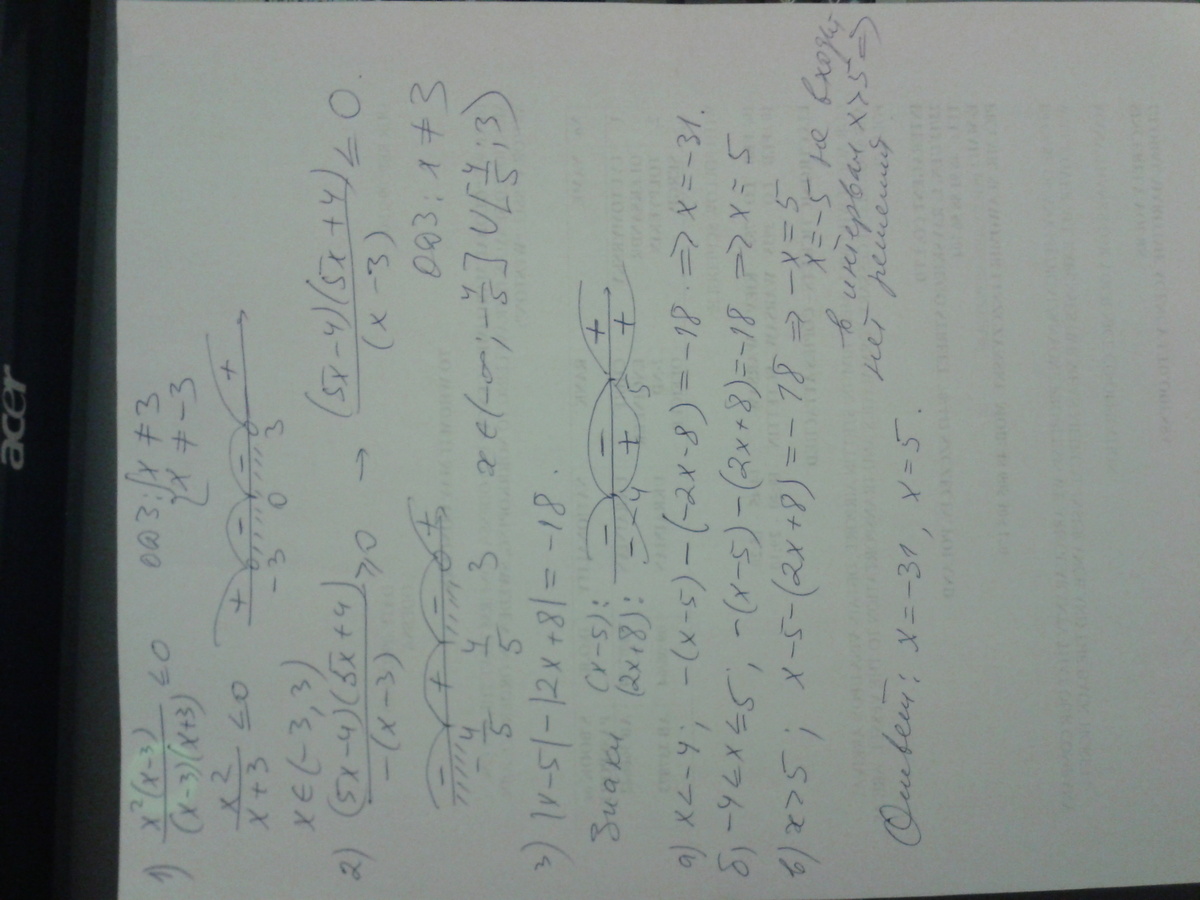 acer
1) x²(x-3)/(x-3)(x+3) ≤ 0 ОДЗ: {x ≠ 3
{x ≠ -3
x²/x+3 ≤ 0 + - - +
-3 0 3
x ∈ (-3, 3)
2) (5x-4)(5x+4)/-(x-3) ≥ 0 → (5x-4)(5x+4)/(x-3) ≤ 0.
- + - + ОДЗ: x ≠ 3
-4/5 4/5 3 x ∈ (-∞; -4/5] ∪ [4/5; 3)
3) |x-5| - |2x+8| = -18.
Знаки (x-5): - - +
(2x+8): - -4 + 5 +
а) x < -4; -(x-5) - (-2x-8) = -18. => x = -31.
б) -4 ≤ x ≤ 5; -(x-5) - (2x+8) = -18 => x = 5
в) x > 5; x-5-(2x+8) = -18 => -x = 5
x = -5 не входит
в интервал x > 5 =>
нет решения
Ответ: x = -31, x = 5.